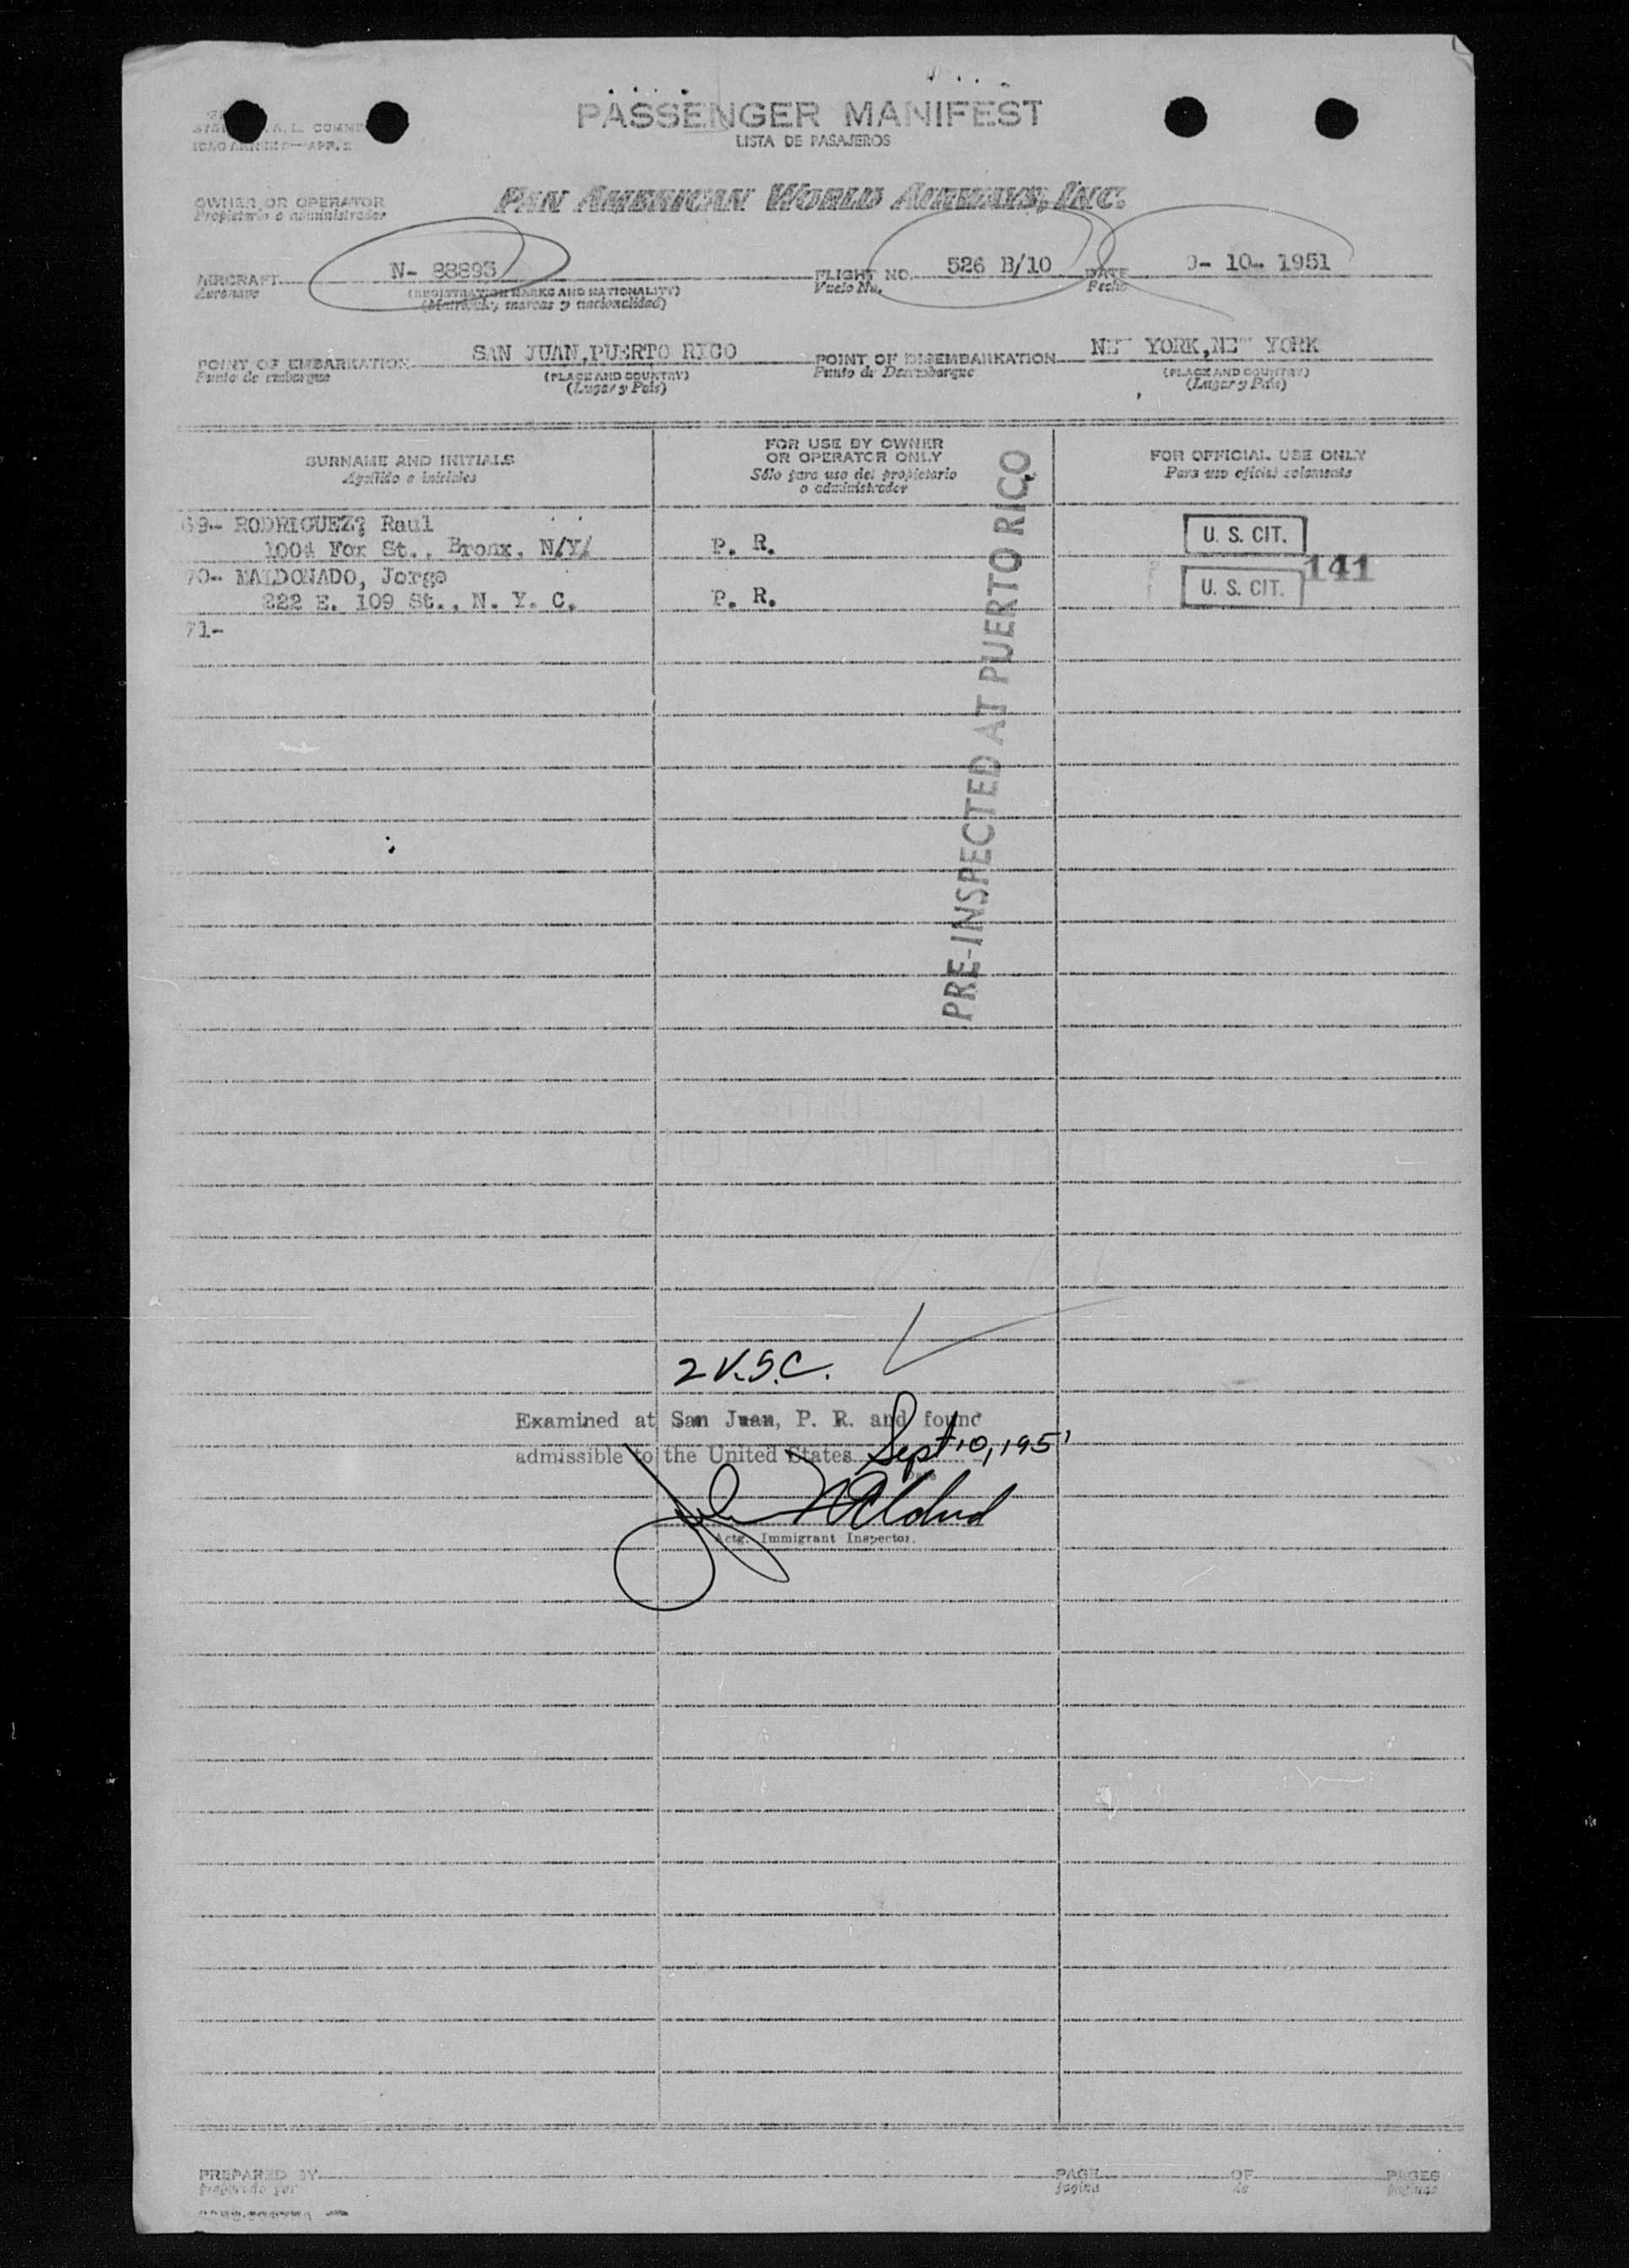 PASSENGER MANIFEST
LISTA DE PASAJEROS
OWNER OR OPERATOR
Propietario o administrador
PAN AMERICAN WORLD AIRWAYS, INC.
AIRCRAFT N- 88893 FLIGHT NO. 526 B/10 DATE 9- 10- 1951
Aeronave (REGISTRATION MARKS AND NATIONALITY) Vuelo No. Fecha
(Matrícula, marcas y nacionalidad)
POINT OF EMBARKATION SAN JUAN,PUERTO RICO POINT OF DISEMBARKATION NEW YORK,NEW YORK
Punto de embarque (PLACE AND COUNTRY) Punto de Desembarque (PLACE AND COUNTRY)
(Lugar y País) (Lugar y País)
SURNAME AND INITIALS
Apellido e iniciales
FOR USE BY OWNER
OR OPERATOR ONLY
Sólo para uso del propietario
o administrador
FOR OFFICIAL USE ONLY
Para uso oficial solamente
69- RODRIGUEZ? Raul
1004 Fox St., Bronx, N/Y/ P. R. U. S. CIT.
141
70- MALDONADO, Jorge
222 E. 109 St., N. Y. C. P. R. U. S. CIT.
71-
PRE-INSPECTED AT PUERTO RICO
2 U.S.C.
Examined at San Juan, P. R. and found
admissible to the United States Sept 10, 1951
Date
Actg. Immigrant Inspector.
PREPARED BY PAGE OF PAGES
Preparado por Página de Páginas